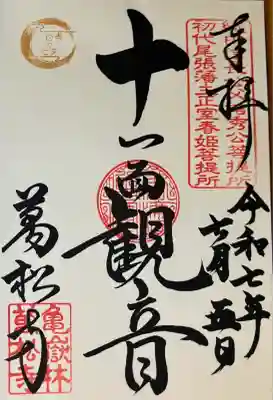 奉拝
初代尾張藩主正室春姫菩提所
令和七年
七月五日
十一面観音
萬松寺
亀嶽林
萬松寺